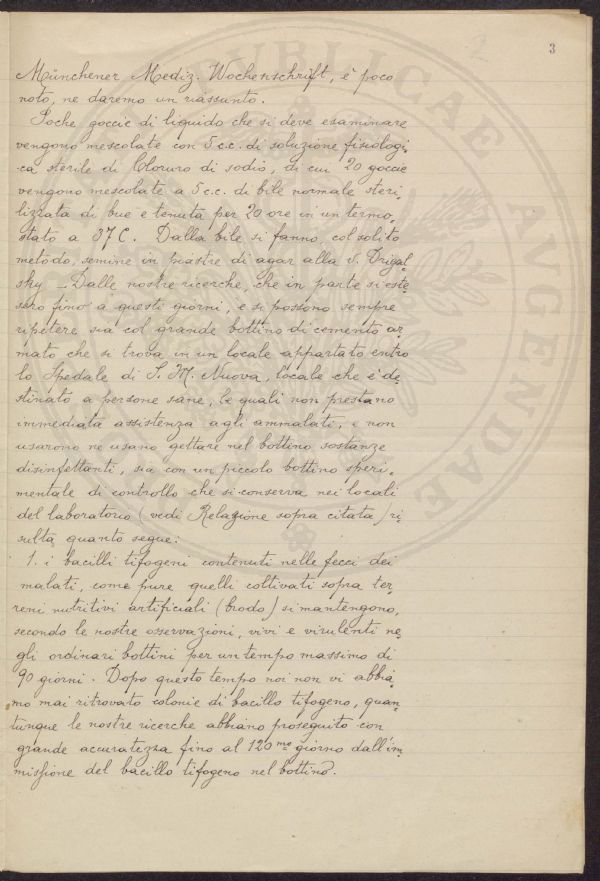 3
Münchener Mediz. Wochenschrift, è poco
noto, ne daremo un riassunto.
Poche goccie di liquido che si deve esaminare
vengono mescolate con 5 c.c. di soluzione fisiologi-
ca sterile di Cloruro di sodio, di cui 20 goccie
vengono mescolate a 5 c.c. di bile normale steri-
lizzata di bue e tenuta per 20 ore in un termo-
stato a 37 C. Dalla bile si fanno, col solito
metodo, semine in piastre di agar alla v. Drigal-
sky _ Dalle nostre ricerche, che in parte si este-
sero fino a questi giorni, e si possono sempre
ripetere sia col grande bottino di cemento ar-
mato che si trova in un locale appartato entro
lo Spedale di S. M. Nuova, locale che è de-
stinato a persone sane, le quali non prestano
immediata assistenza agli ammalati, e non
usarono ne usano gettare nel bottino sostanze
disinfettanti, sia con un piccolo bottino speri-
mentale di controllo che si conserva nei locali
del laboratorio (vedi Relazione sopra citata) ri-
sulta quanto segue:
1. i bacilli tifogeni contenuti nelle fecci dei
malati, come pure quelli coltivati sopra ter-
reni nutritivi artificiali (brodo) si mantengono,
secondo le nostre osservazioni, vivi e virulenti ne-
gli ordinari bottini per un tempo massimo di
90 giorni. Dopo questo tempo noi non vi abbia-
mo mai ritrovato colonie di bacillo tifogeno, quan-
tunque le nostre ricerche abbiano proseguito con
grande accuratezza fino al 120mo giorno dall'im-
missione del bacillo tifogeno nel bottino.